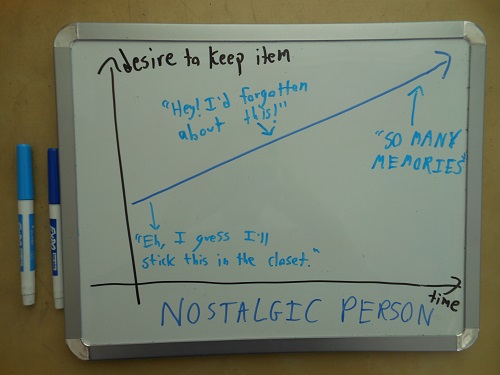 desire to keep item
"Hey! I'd forgotten
about this!"
"SO MANY
MEMORIES"
"Eh, I guess I'll
stick this in the closet."
time
NOSTALGIC PERSON